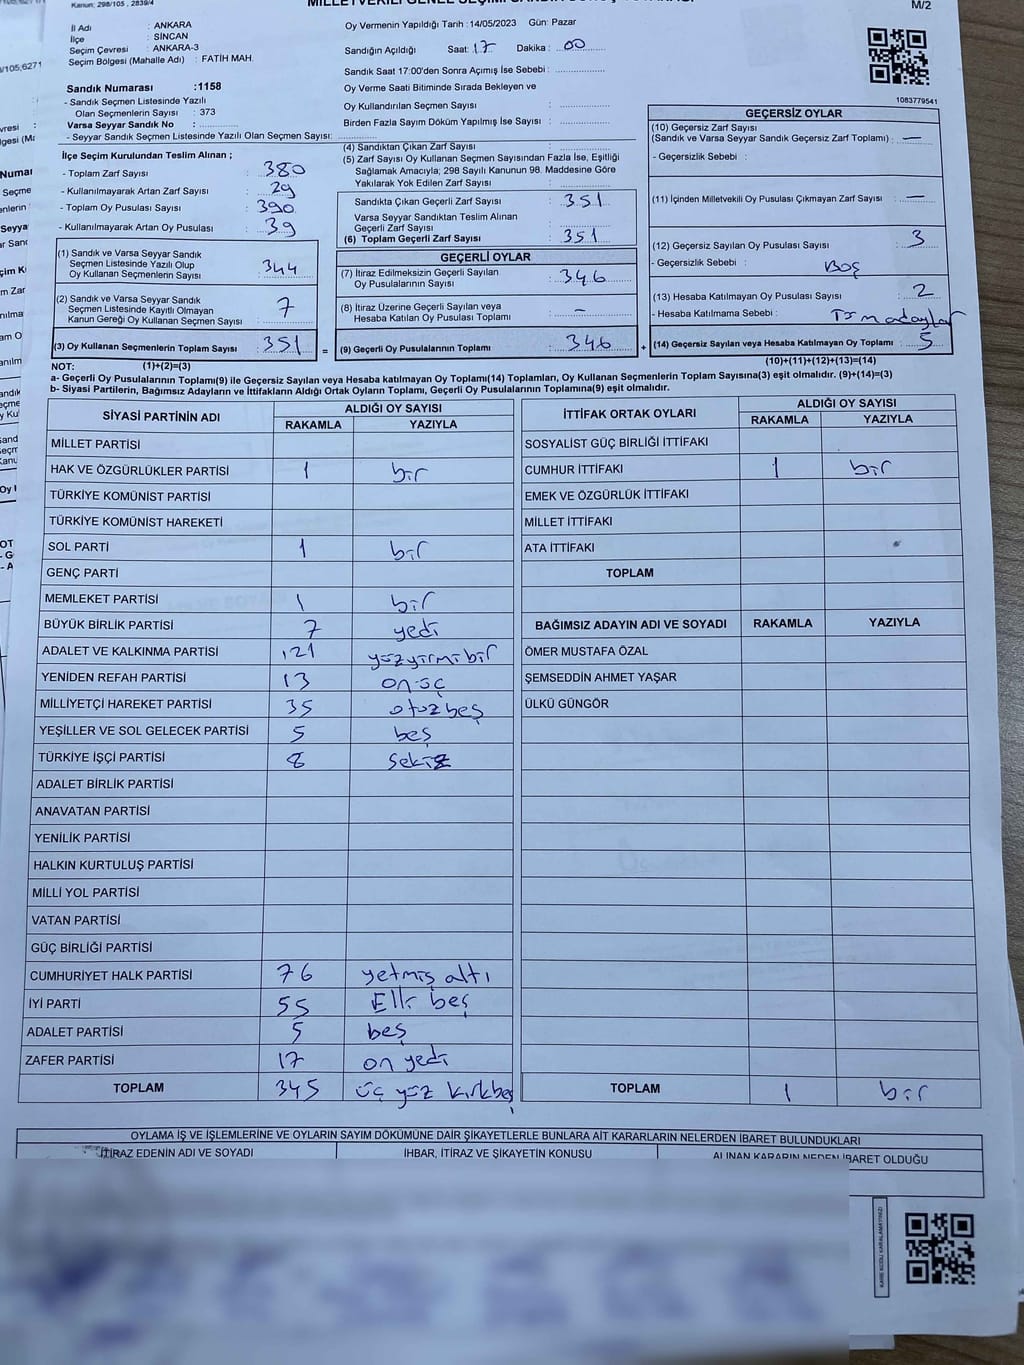 Kanun: 298/105 , 2839/4
M/2
İl Adı : ANKARA
İlçe : SİNCAN
Seçim Çevresi : ANKARA-3
Seçim Bölgesi (Mahalle Adı) : FATİH MAH.
Oy Vermenin Yapıldığı Tarih :14/05/2023 Gün: Pazar
Sandığın Açıldığı Saat: 17 Dakika : 00
Sandık Saat 17:00'den Sonra Açımış İse Sebebi :
Oy Verme Saati Bitiminde Sırada Bekleyen ve
Oy Kullandırılan Seçmen Sayısı :
Birden Fazla Sayım Döküm Yapılmış İse Sayısı :
Sandık Numarası :1158
- Sandık Seçmen Listesinde Yazılı
Olan Seçmenlerin Sayısı : 373
Varsa Seyyar Sandık No :
- Seyyar Sandık Seçmen Listesinde Yazılı Olan Seçmen Sayısı:
1083779541
İlçe Seçim Kurulundan Teslim Alınan ;
- Toplam Zarf Sayısı : 380
- Kullanılmayarak Artan Zarf Sayısı : 29
- Toplam Oy Pusulası Sayısı : 390
- Kullanılmayarak Artan Oy Pusulası : 39
(1) Sandık ve Varsa Seyyar Sandık
Seçmen Listesinde Yazılı Olup
Oy Kullanan Seçmenlerin Sayısı : 344
(2) Sandık ve Varsa Seyyar Sandık
Seçmen Listesinde Kayıtlı Olmayan
Kanun Gereği Oy Kullanan Seçmen Sayısı : 7
(3) Oy Kullanan Seçmenlerin Toplam Sayısı : 351
(4) Sandıktan Çıkan Zarf Sayısı :
(5) Zarf Sayısı Oy Kullanan Seçmen Sayısından Fazla İse, Eşitliği
Sağlamak Amacıyla; 298 Sayılı Kanunun 98. Maddesine Göre
Yakılarak Yok Edilen Zarf Sayısı :
Sandıkta Çıkan Geçerli Zarf Sayısı : 351
Varsa Seyyar Sandıktan Teslim Alınan
Geçerli Zarf Sayısı :
(6) Toplam Geçerli Zarf Sayısı : 351
GEÇERLİ OYLAR
(7) İtiraz Edilmeksizin Geçerli Sayılan
Oy Pusulasının Sayısı : 346
(8) İtiraz Üzerine Geçerli Sayılan veya
Hesaba Katılan Oy Pusulası Toplamı : -
= (9) Geçerli Oy Pusulalarının Toplamı : 346
GEÇERSİZ OYLAR
(10) Geçersiz Zarf Sayısı
(Sandık ve Varsa Seyyar Sandık Geçersiz Zarf Toplamı) : —
- Geçersizlik Sebebi :
(11) İçinden Milletvekili Oy Pusulası Çıkmayan Zarf Sayısı : —
(12) Geçersiz Sayılan Oy Pusulası Sayısı : 3
- Geçersizlik Sebebi : Boş
(13) Hesaba Katılmayan Oy Pusulası Sayısı : 2
- Hesaba Katılmama Sebebi :
+ (14) Geçersiz Sayılan veya Hesaba Katılmayan Oy Toplamı : 5
NOT: (1)+(2)=(3)
(10)+(11)+(12)+(13)=(14)
a- Geçerli Oy Pusulalarının Toplamı(9) ile Geçersiz Sayılan veya Hesaba katılmayan Oy Toplamı(14) Toplamları, Oy Kullanan Seçmenlerin Toplam Sayısına(3) eşit olmalıdır. (9)+(14)=(3)
b- Siyasi Partilerin, Bağımsız Adayların ve İttifakların Aldığı Ortak Oyların Toplamı, Geçerli Oy Pusulalarının Toplamına(9) eşit olmalıdır.
SİYASİ PARTİNİN ADI ALDIĞI OY SAYISI
RAKAMLA YAZIYLA
MİLLET PARTİSİ
HAK VE ÖZGÜRLÜKLER PARTİSİ 1 bir
TÜRKİYE KOMÜNİST PARTİSİ
TÜRKİYE KOMÜNİST HAREKETİ
SOL PARTİ 1 bir
GENÇ PARTİ
MEMLEKET PARTİSİ 1 bir
BÜYÜK BİRLİK PARTİSİ 7 yedi
ADALET VE KALKINMA PARTİSİ 121 yüzyirmibir
YENİDEN REFAH PARTİSİ 13 on üç
MİLLİYETÇİ HAREKET PARTİSİ 35 otuzbeş
YEŞİLLER VE SOL GELECEK PARTİSİ 5 beş
TÜRKİYE İŞÇİ PARTİSİ 8 sekiz
ADALET BİRLİK PARTİSİ
ANAVATAN PARTİSİ
YENİLİK PARTİSİ
HALKIN KURTULUŞ PARTİSİ
MİLLİ YOL PARTİSİ
VATAN PARTİSİ
GÜÇ BİRLİĞİ PARTİSİ
CUMHURİYET HALK PARTİSİ 76 yetmiş altı
İYİ PARTİ 55 Elli beş
ADALET PARTİSİ 5 beş
ZAFER PARTİSİ 17 on yedi
TOPLAM 345 üç yüz kırkbeş
İTTİFAK ORTAK OYLARI ALDIĞI OY SAYISI
RAKAMLA YAZIYLA
SOSYALİST GÜÇ BİRLİĞİ İTTİFAKI
CUMHUR İTTİFAKI 1 bir
EMEK VE ÖZGÜRLÜK İTTİFAKI
MİLLET İTTİFAKI
ATA İTTİFAKI
TOPLAM
BAĞIMSIZ ADAYIN ADI VE SOYADI RAKAMLA YAZIYLA
ÖMER MUSTAFA ÖZAL
ŞEMSEDDİN AHMET YAŞAR
ÜLKÜ GÜNGÖR
TOPLAM 1 bir
OYLAMA İŞ VE İŞLEMLERİNE VE OYLARIN SAYIM DÖKÜMÜNE DAİR ŞİKAYETLERLE BUNLARA AİT KARARLARIN NELERDEN İBARET BULUNDUKLARI
İTİRAZ EDENİN ADI VE SOYADI İHBAR, İTİRAZ VE ŞİKAYETİN KONUSU ALINAN KARARIN NEDEN İBARET OLDUĞU
KARE KODU KARALAMAYINIZ!